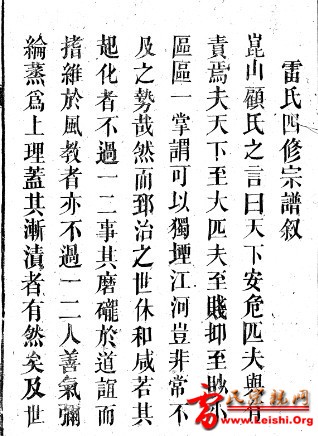 雷氏四修宗譜叙
崑山顧氏之言曰天下安危匹夫與有
責焉夫天下至大匹夫至賤抑至眇小
區區一掌謂可以獨堙江河豈非常不
及之勢哉然而郅治之世休和咸若其
起化者不過一二事其磨礲於道誼而
搘維於風教者亦不過一二人善氣彌
綸蒸爲上理蓋其漸漬者有然矣及世
www.Leishi.Org